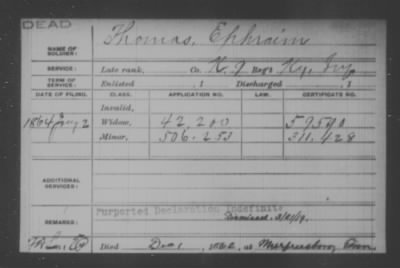 DEAD
Thomas, Ephraim
NAME OF SOLDIER:
SERVICE: Late rank, Co. K. 9 Reg't Ky. Inf.
TERM OF SERVICE: Enlisted , 1 Discharged , 1
DATE OF FILING. CLASS. APPLICATION NO. LAW. CERTIFICATE NO.
Invalid,
1864 2 Widow, 42,200 59590
Minor, 506.253 311,428
ADDITIONAL SERVICES:
Purported Declaration Indefinite
REMARKS: Dismissed.
Died Dec , 1862, at Murfreesboro, Tenn.